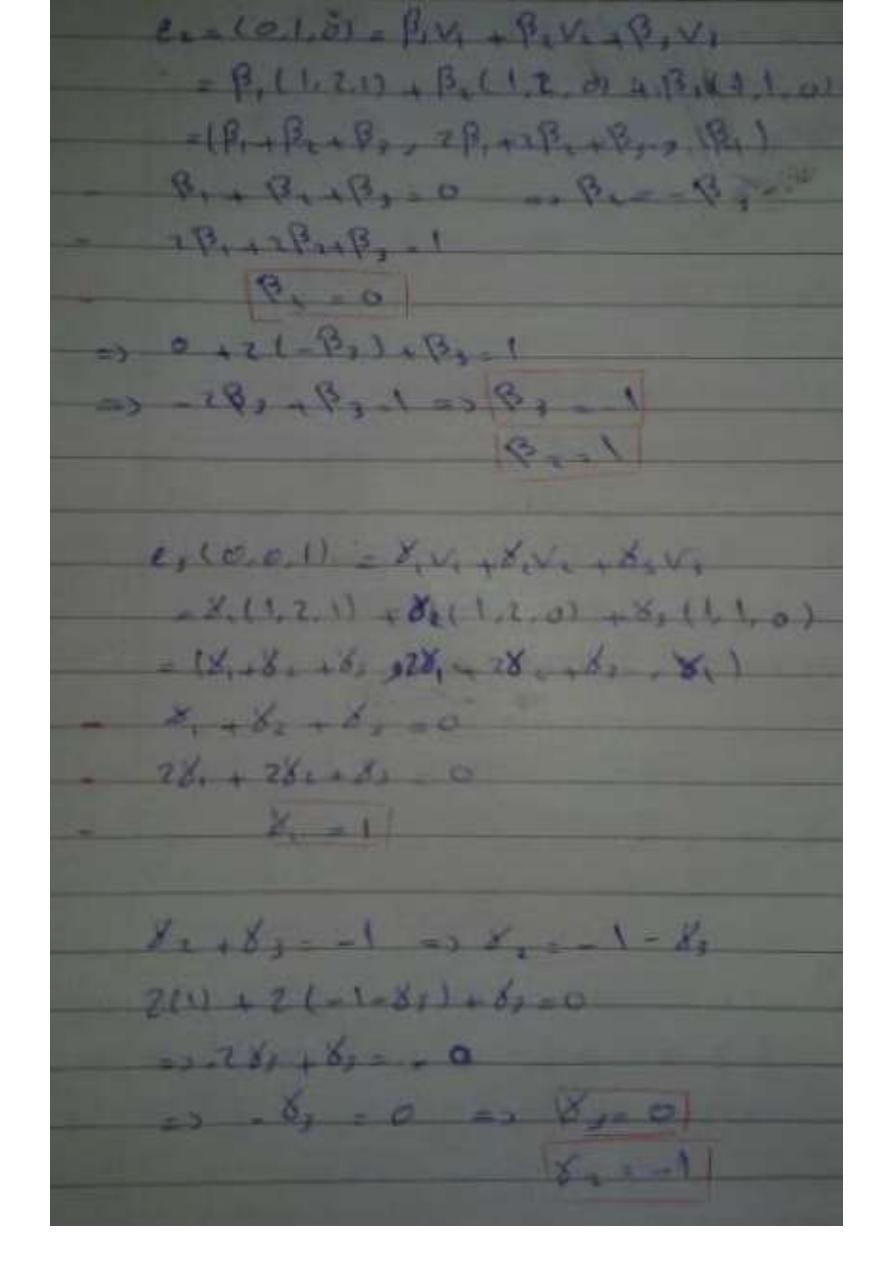 e₂ = (0,1,0) = β₁v₁ + β₂v₂ + β₃v₃
= β₁(1,2,1) + β₂(1,2,0) + β₃(1,1,0)
= (β₁+β₂+β₃, 2β₁+2β₂+β₃, β₁)
- β₁ + β₂ + β₃ = 0 => β₂ = -β₃
- 2β₁ + 2β₂ + β₃ = 1
- β₁ = 0
=> 0 + 2(-β₃) + β₃ = 1
=> -2β₃ + β₃ = 1 => β₃ = -1
β₂ = 1
e₃(0,0,1) = γ₁v₁ + γ₂v₂ + γ₃v₃
= γ₁(1,2,1) + γ₂(1,2,0) + γ₃(1,1,0)
= (γ₁+γ₂+γ₃, 2γ₁+2γ₂+γ₃, γ₁)
- γ₁ + γ₂ + γ₃ = 0
- 2γ₁ + 2γ₂ + γ₃ = 0
- γ₁ = 1
γ₂ + γ₃ = -1 => γ₂ = -1 - γ₃
2(1) + 2(-1-γ₃) + γ₃ = 0
=> -2γ₃ + γ₃ = 0
=> -γ₃ = 0 => γ₃ = 0
γ₂ = -1